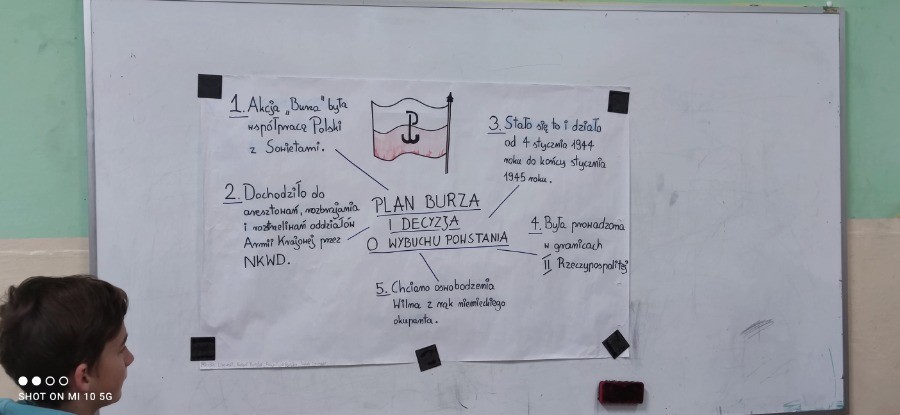 1. Akcja „Burza" była
współpracę Polski
z Sowietami.
2. Dochodziło do
aresztowań, rozbrajania
i rozstreliwań oddziałów
Armii Krajowej przez
NKWD.
PLAN BURZA
I DECYZJA
O WYBUCHU POWSTANIA
3. Stało się to i działo
od 4 stycznia 1944
roku do końcy stycznia
1945 roku.
4. Była prowadzona
w granicach
II Rzeczypospolitej
5. Chciano oswobodzenia
Wilna z rąk niemieckiego
okupanta.
SHOT ON MI 10 5G